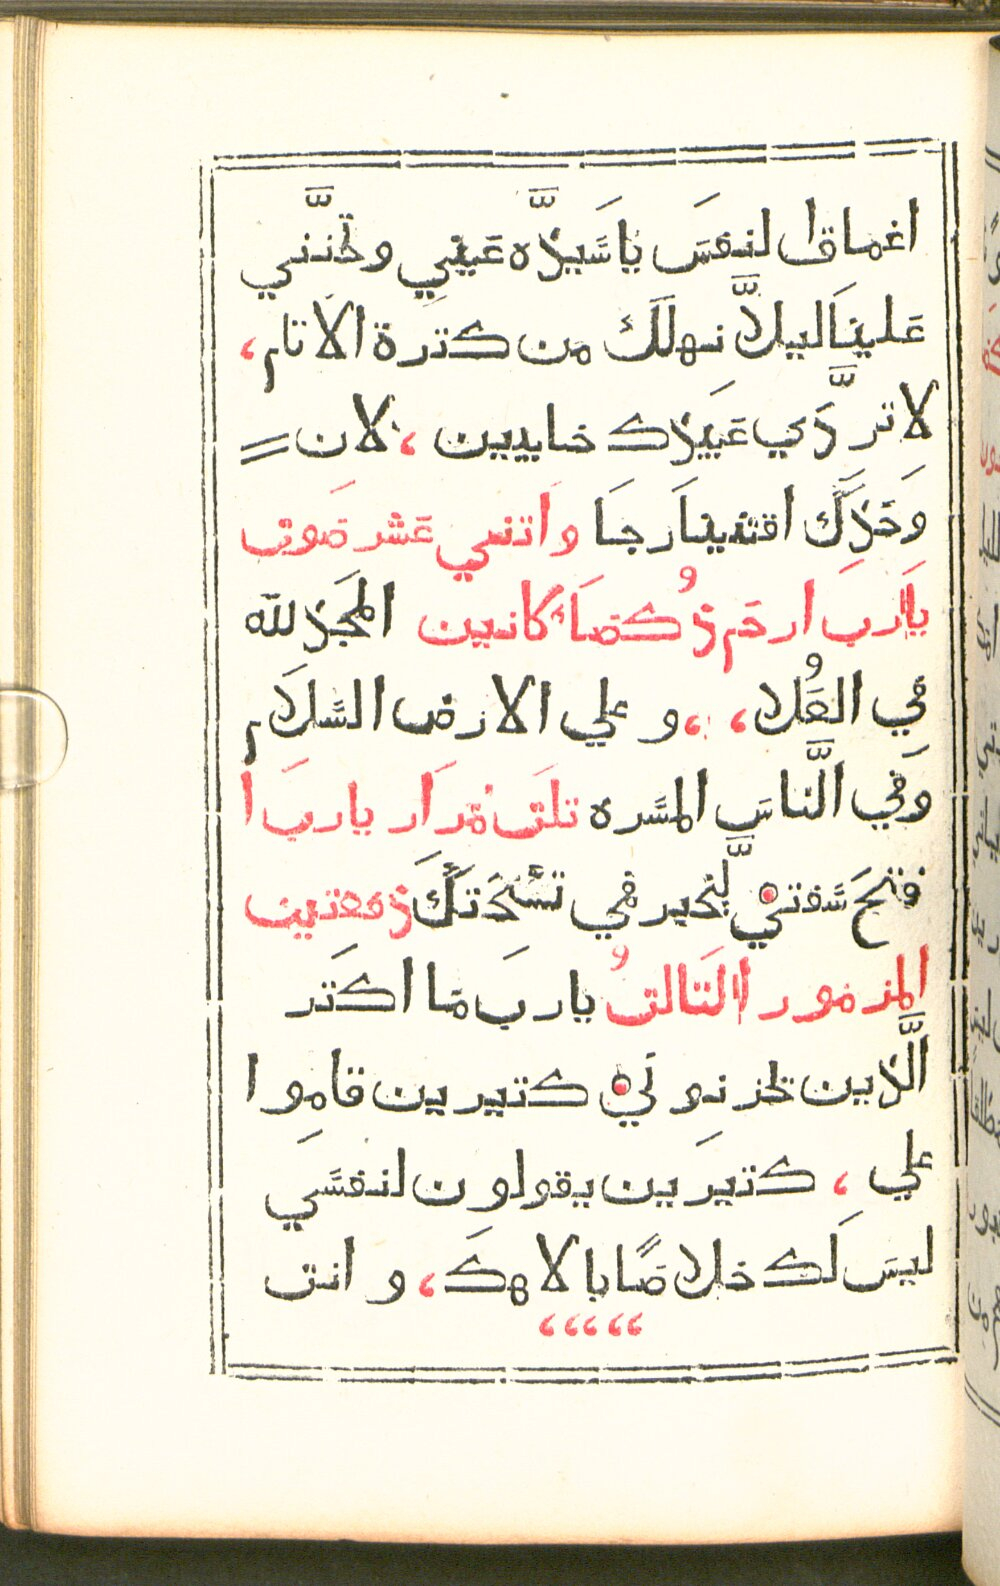 اغماق النفسَ ياسَّيدَّاه عَينِي وتحَّننِي
عَلينَاليلاَّ نهلَك من كترة الاَتام،
لاترَّدِّي عَبيدَك خايبين ، لان =
وَحدِك اقتنينَارجَا واَتنىي عَشر مَوت
ياَرب ارحَم ذُكصَا كانيين المجَد لله
فِي العُلا، ،و علي الارض السَّلاَم
وَفِي النَّاسَ المسَّره تلَت مَراَر يارب ا
فتحَ شَفتيّ لتخبر فمي تسُبحَتكَ دفعتين
المزمور التَالتُ يارب مَا اكتَر
الَّذين يحزنونَي كتيرين قاموا
علي ، كتيرَين يقولون لنفسَي
ليسَ لَك خلاصًابالاهكَ، و انت
،،،،،